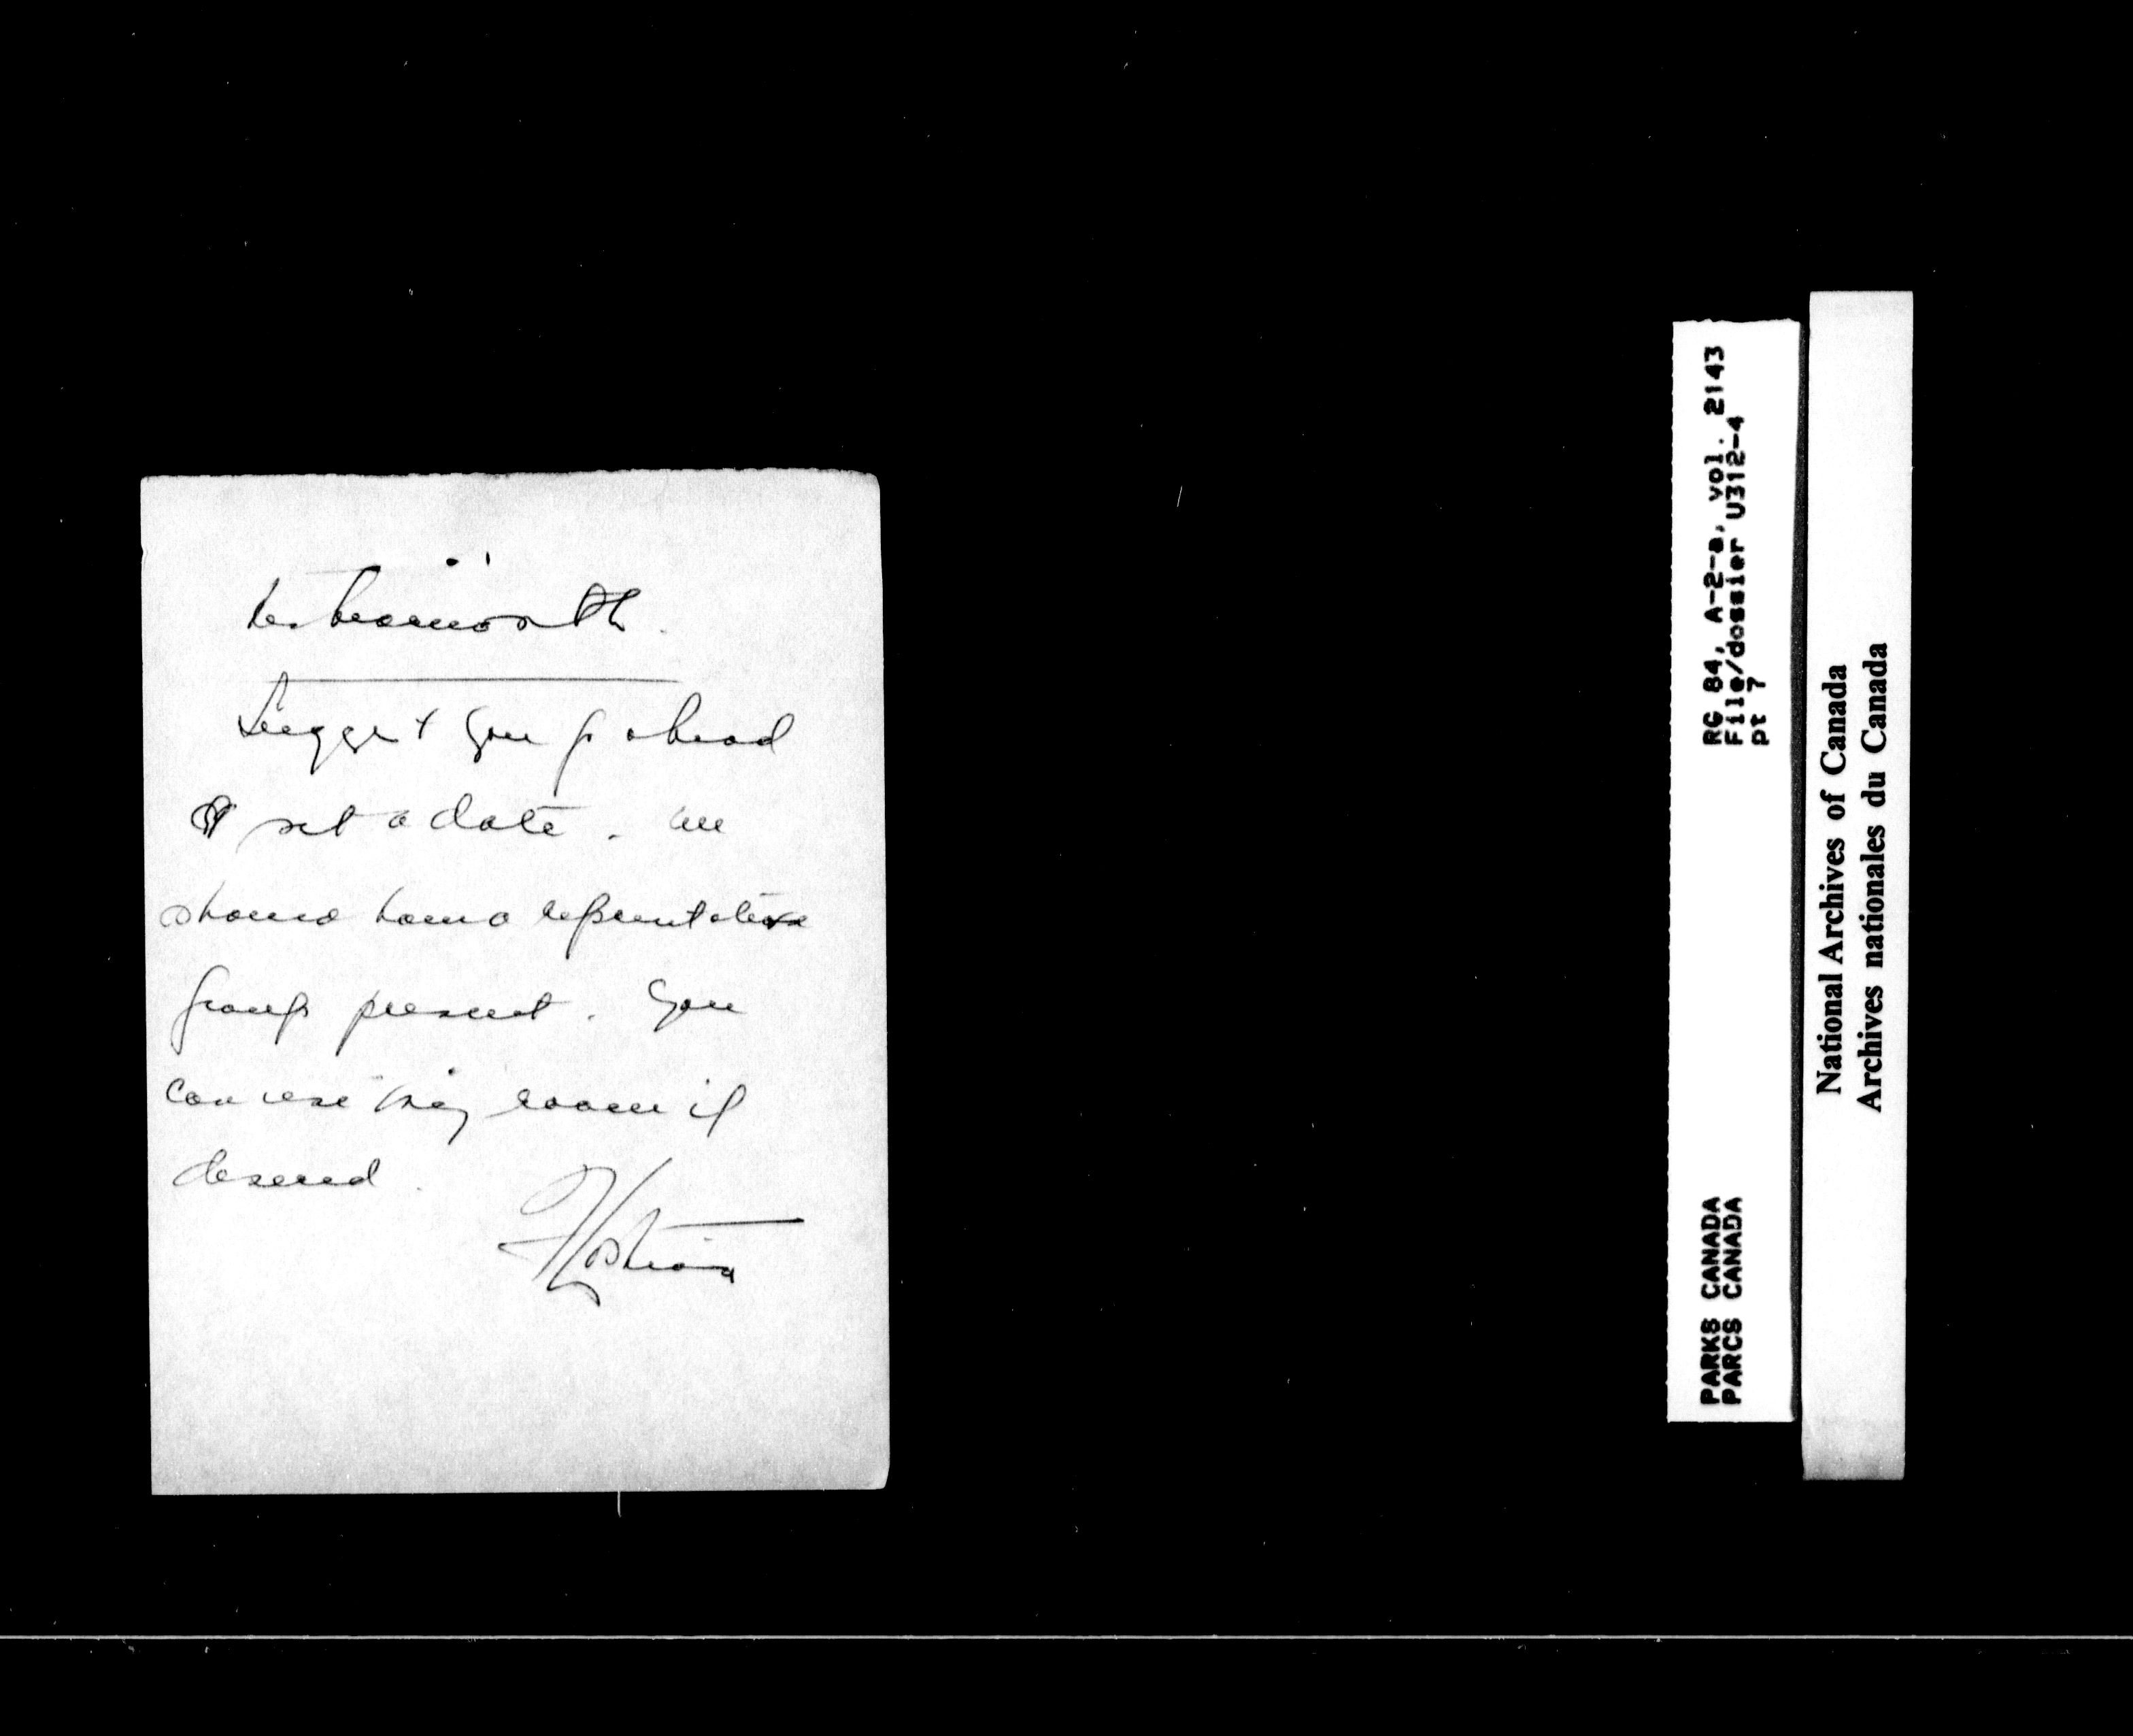 Suggest you go ahead
& set a date. We
should have a representative
group present. You
can use my room if
desired.
RG 84, A-2-a, vol. 2143
File/dossier U312-4
pt 7
PARKS CANADA
PARCS CANADA
National Archives of Canada
Archives nationales du Canada